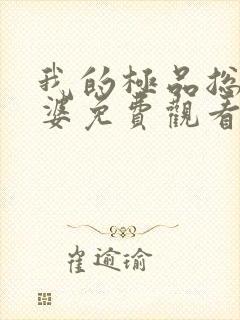 我的極品总
婆免費觀看
崔逾瑜